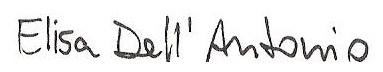 Elisa Dell' Antonio